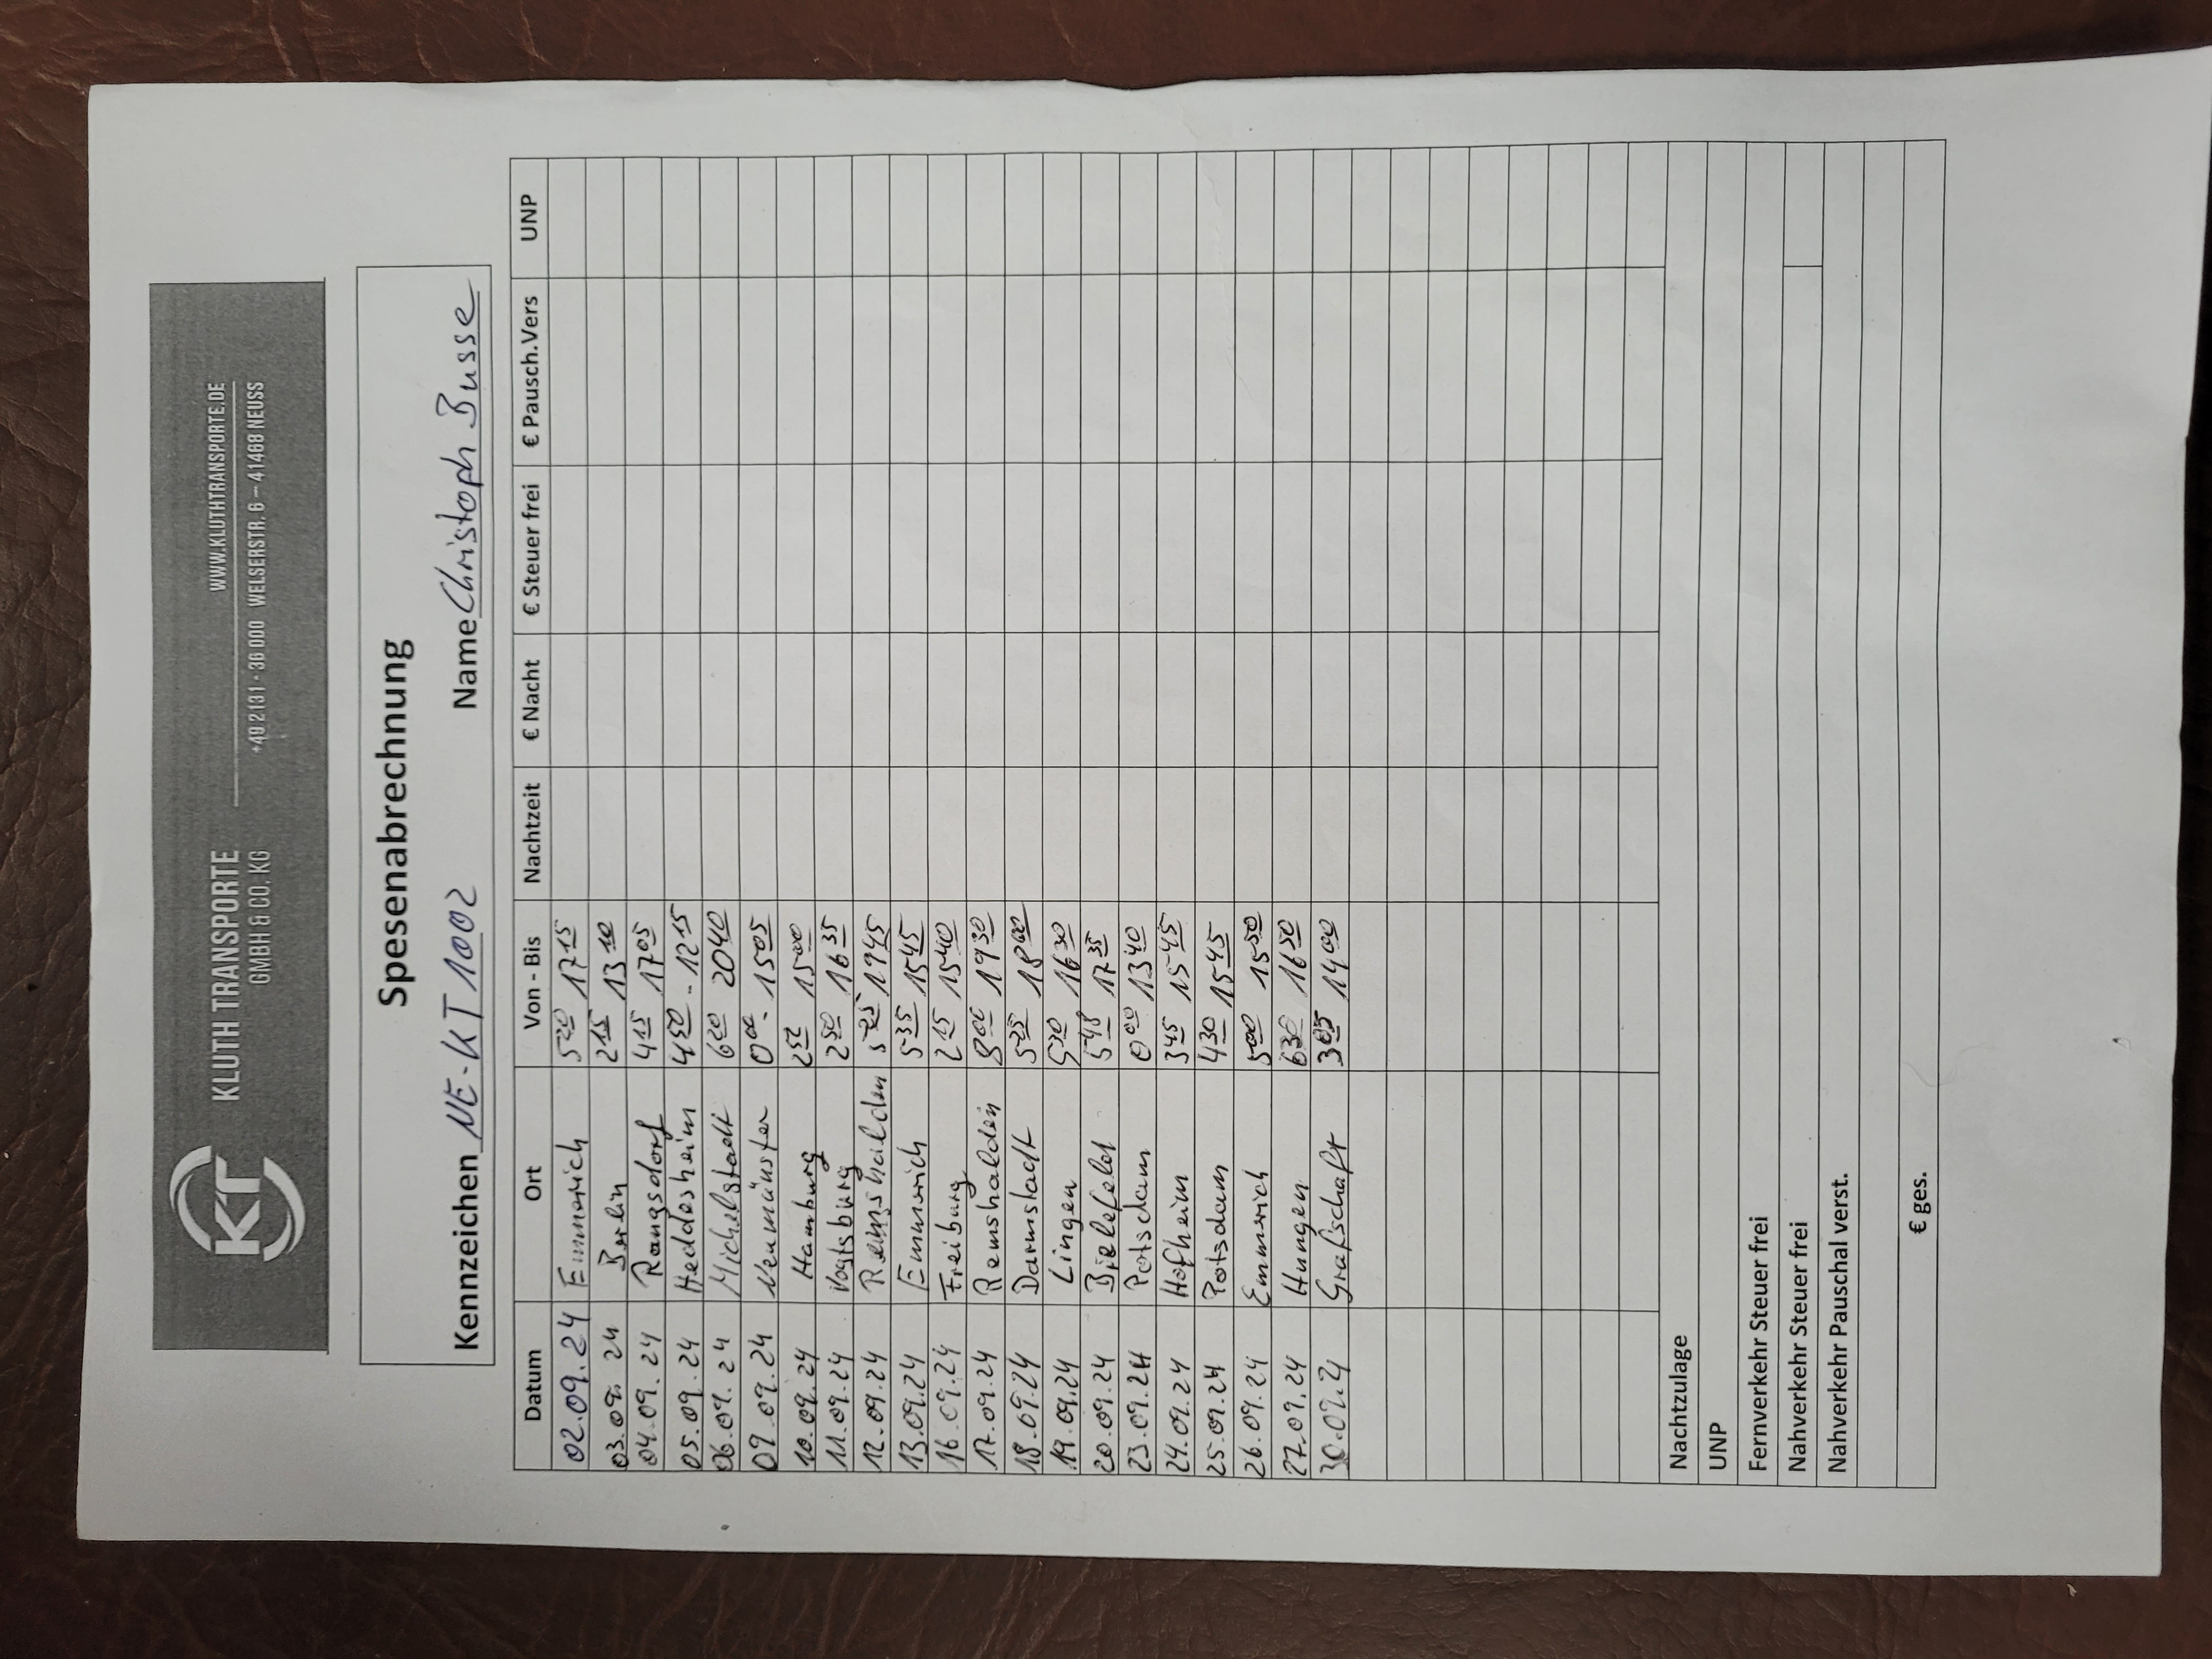 KT KLUTH TRANSPORTE WWW.KLUTHTRANSPORTE.DE
GMBH & CO. KG +49 2131 - 36 000 WELSERSTR. 6 – 41468 NEUSS
Spesenabrechnung
Kennzeichen NE-KT 1002 Name Christoph Busse
Datum Ort Von - Bis Nachtzeit € Nacht € Steuer frei € Pausch.Vers UNP
02.09.24 Emmerich 5 20 17 15
03.09.24 Berlin 2 15 13 10
04.09.24 Rangsdorf 4 15 17 05
05.09.24 Heddesheim 4 50 - 12 15
06.09.24 Michelstadt 6 20 20 40
09.09.24 Neumünster 0 00 - 15 05
10.09.24 Hamburg 15 00
11.09.24 Vogtsburg 2 50 16 35
12.09.24 Remshalden 19 45
13.09.24 Emmerich 5 35 15 45
16.09.24 Freiburg 2 15 15 40
17.09.24 Remshalden 8 00 19 30
18.09.24 Darmstadt 5 25 18 00
19.09.24 Lingen 5 20 16 30
20.09.24 Bielefeld 5 48 17 35
23.09.24 Potsdam 0 00 13 40
24.09.24 Hofheim 3 45 15 45
25.09.24 Potsdam 4 30 15 45
26.09.24 Emmerich 5 00 15 50
27.09.24 Hungen 6 30 16 50
30.09.24 Grafschaft 3 05 14 00
Nachtzulage
UNP
Fernverkehr Steuer frei
Nahverkehr Steuer frei
Nahverkehr Pauschal verst.
€ ges.